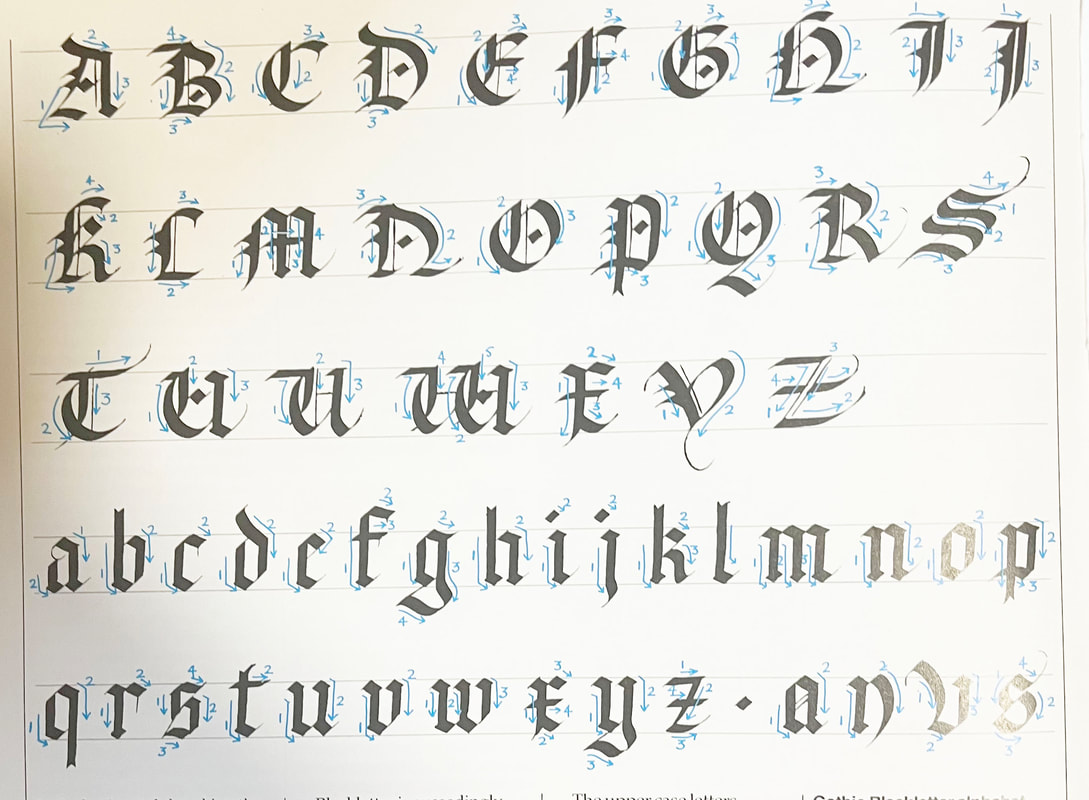 A B C D E F G H I J
K L M N O P Q R S
T U V W X Y Z
a b c d e f g h i j k l m n o p
q r s t u v w x y z · a n v s
The upper case letters
Gothic Blackletter alphabet